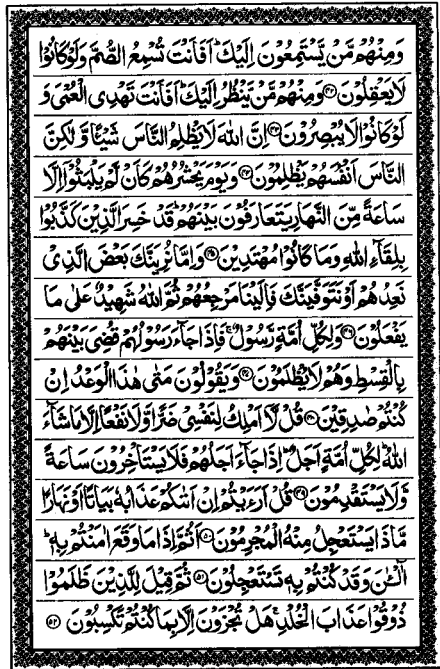 وَمِنْهُمْ مَّنْ يَّسْتَمِعُوْنَ اِلَيْكَ ؕ اَفَاَنْتَ تُسْمِعُ الصُّمَّ وَلَوْ كَانُوْا
لَا يَعْقِلُوْنَ ﴿۴۲﴾ وَمِنْهُمْ مَّنْ يَّنْظُرُ اِلَيْكَ ؕ اَفَاَنْتَ تَهْدِى الْعُمْىَ وَ
لَوْ كَانُوْا لَا يُبْصِرُوْنَ ﴿۴۳﴾ اِنَّ اللّٰهَ لَا يَظْلِمُ النَّاسَ شَيْئًا وَّلٰكِنَّ
النَّاسَ اَنْفُسَهُمْ يَظْلِمُوْنَ ﴿۴۴﴾ وَيَوْمَ يَحْشُرُهُمْ كَاَنْ لَّمْ يَلْبَثُوْۤا اِلَّا
سَاعَةً مِّنَ النَّهَارِ يَتَعَارَفُوْنَ بَيْنَهُمْ ؕ قَدْ خَسِرَ الَّذِيْنَ كَذَّبُوْا
بِلِقَآءِ اللّٰهِ وَمَا كَانُوْا مُهْتَدِيْنَ ﴿۴۵﴾ وَاِمَّا نُرِيَنَّكَ بَعْضَ الَّذِىْ
نَعِدُهُمْ اَوْ نَتَوَفَّيَنَّكَ فَاِلَيْنَا مَرْجِعُهُمْ ثُمَّ اللّٰهُ شَهِيْدٌ عَلٰى مَا
يَفْعَلُوْنَ ﴿۴۶﴾ وَلِكُلِّ اُمَّةٍ رَّسُوْلٌ ۚ فَاِذَا جَآءَ رَسُوْلُهُمْ قُضِىَ بَيْنَهُمْ
بِالْقِسْطِ وَهُمْ لَا يُظْلَمُوْنَ ﴿۴۷﴾ وَيَقُوْلُوْنَ مَتٰى هٰذَا الْوَعْدُ اِنْ
كُنْتُمْ صٰدِقِيْنَ ﴿۴۸﴾ قُلْ لَّاۤ اَمْلِكُ لِنَفْسِىْ ضَرًّا وَّلَا نَفْعًا اِلَّا مَا شَآءَ
اللّٰهُ ؕ لِكُلِّ اُمَّةٍ اَجَلٌ ؕ اِذَا جَآءَ اَجَلُهُمْ فَلَا يَسْتَاْخِرُوْنَ سَاعَةً
وَّلَا يَسْتَقْدِمُوْنَ ﴿۴۹﴾ قُلْ اَرَءَيْتُمْ اِنْ اَتٰىكُمْ عَذَابُهٗ بَيَاتًا اَوْ نَهَارًا
مَّاذَا يَسْتَعْجِلُ مِنْهُ الْمُجْرِمُوْنَ ﴿۵۰﴾ اَثُمَّ اِذَا مَا وَقَعَ اٰمَنْتُمْ بِهٖ ؕ
آٰلْـٰٔنَ وَقَدْ كُنْتُمْ بِهٖ تَسْتَعْجِلُوْنَ ﴿۵۱﴾ ثُمَّ قِيْلَ لِلَّذِيْنَ ظَلَمُوْا
ذُوْقُوْا عَذَابَ الْخُلْدِ ۚ هَلْ تُجْزَوْنَ اِلَّا بِمَا كُنْتُمْ تَكْسِبُوْنَ ﴿۵۲﴾